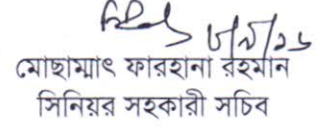 মোছাম্মাৎ ফারহানা রহমান
সিনিয়র সহকারী সচিব